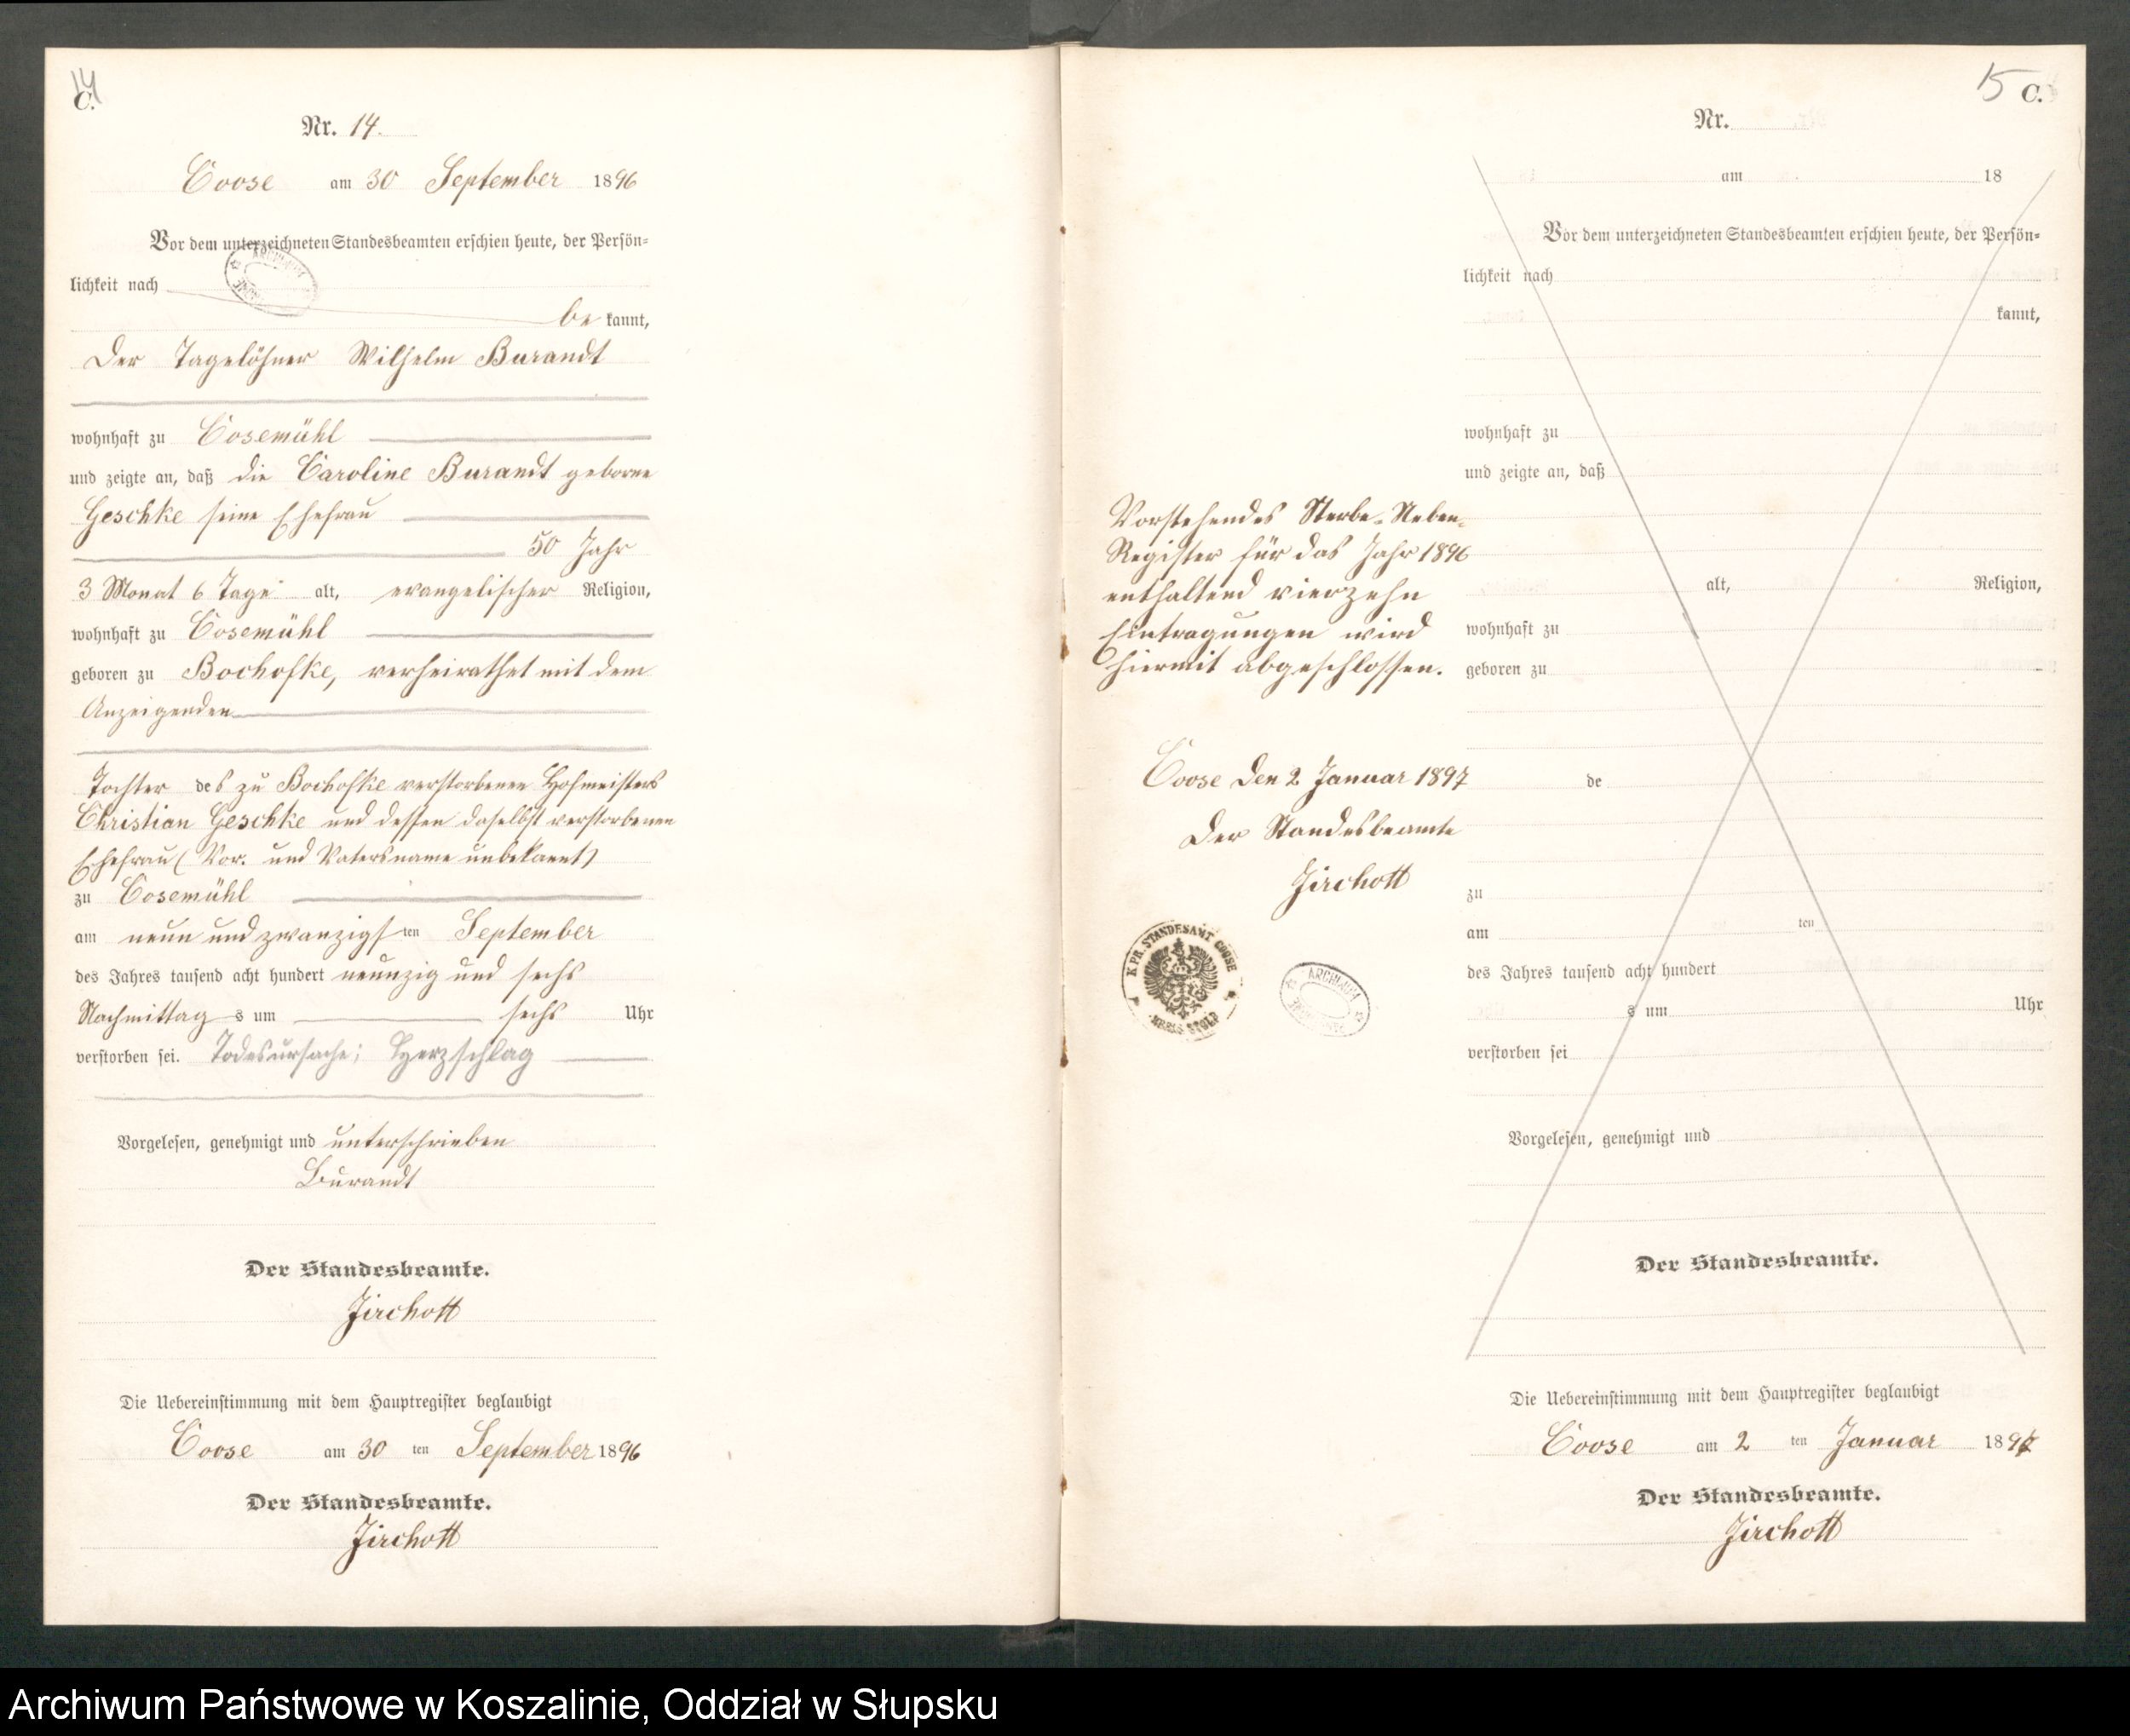 14
C.
Nr. 14.
Coose am 30 September 1896
Vor dem unterzeichneten Standesbeamten erschien heute, der Persön-
lichkeit nach
be kannt,
Der Tagelöhner Wilhelm Burandt
wohnhaft zu Cosemühl
und zeigte an, daß die Caroline Burandt geborne
Geschke seine Ehefrau
50 Jahr
3 Monat 6 Tage alt, evangelischer Religion,
wohnhaft zu Cosemühl
geboren zu Bochofke, verheirathet mit dem
Anzeigenden
Tochter des zu Bochofke verstorbenen Hofmeisters
Christian Geschke und dessen daselbst verstorbenen
Ehefrau (Vor. und Vatersname unbekannt)
zu Cosemühl
am neun und zwanzigsten September
des Jahres tausend acht hundert neunzig und sechs
Nachmittag s um sechs Uhr
verstorben sei. Todesursache; Herzschlag
Vorgelesen, genehmigt und unterschrieben
Burandt
Der Standesbeamte.
Jirchott
Die Uebereinstimmung mit dem Hauptregister beglaubigt
Coose am 30 ten September 1896
Der Standesbeamte.
Jirchott
15 C.
Nr.
am 18
Vor dem unterzeichneten Standesbeamten erschien heute, der Persön-
lichkeit nach
kannt,
wohnhaft zu
und zeigte an, daß
alt, Religion,
wohnhaft zu
geboren zu
de
zu
am ten
des Jahres tausend acht hundert
s um Uhr
verstorben sei
Vorgelesen, genehmigt und
Der Standesbeamte.
Die Uebereinstimmung mit dem Hauptregister beglaubigt
Coose am 2 ten Januar 1897
Der Standesbeamte.
Jirchott
Vorstehendes Sterbe-Neben-
Register für das Jahr 1896
enthaltend vierzehn
Eintragungen wird
hiermit abgeschlossen.
Coose den 2 Januar 1897
Der Standesbeamte
Jirchott
K. PR. STANDESAMT COOSE
KREIS STOLP
Archiwum Państwowe w Koszalinie, Oddział w Słupsku